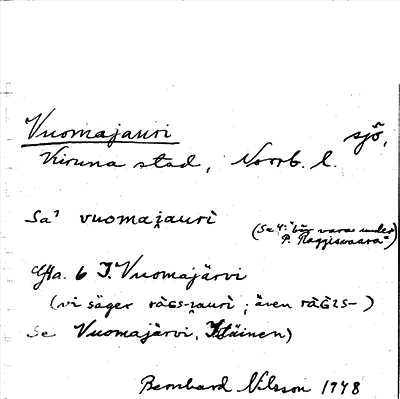 Vuomajauri sjö,
Kiruna stad, Norrb. l.
Sa¹ vuomai̯auri
(Sa 4: "bör vara under
P. Raggisvaara")
6 J. Vuomajärvi
(vi säger även
Se Vuomajärvi, Itäinen)
Bernhard Nilsson 1948